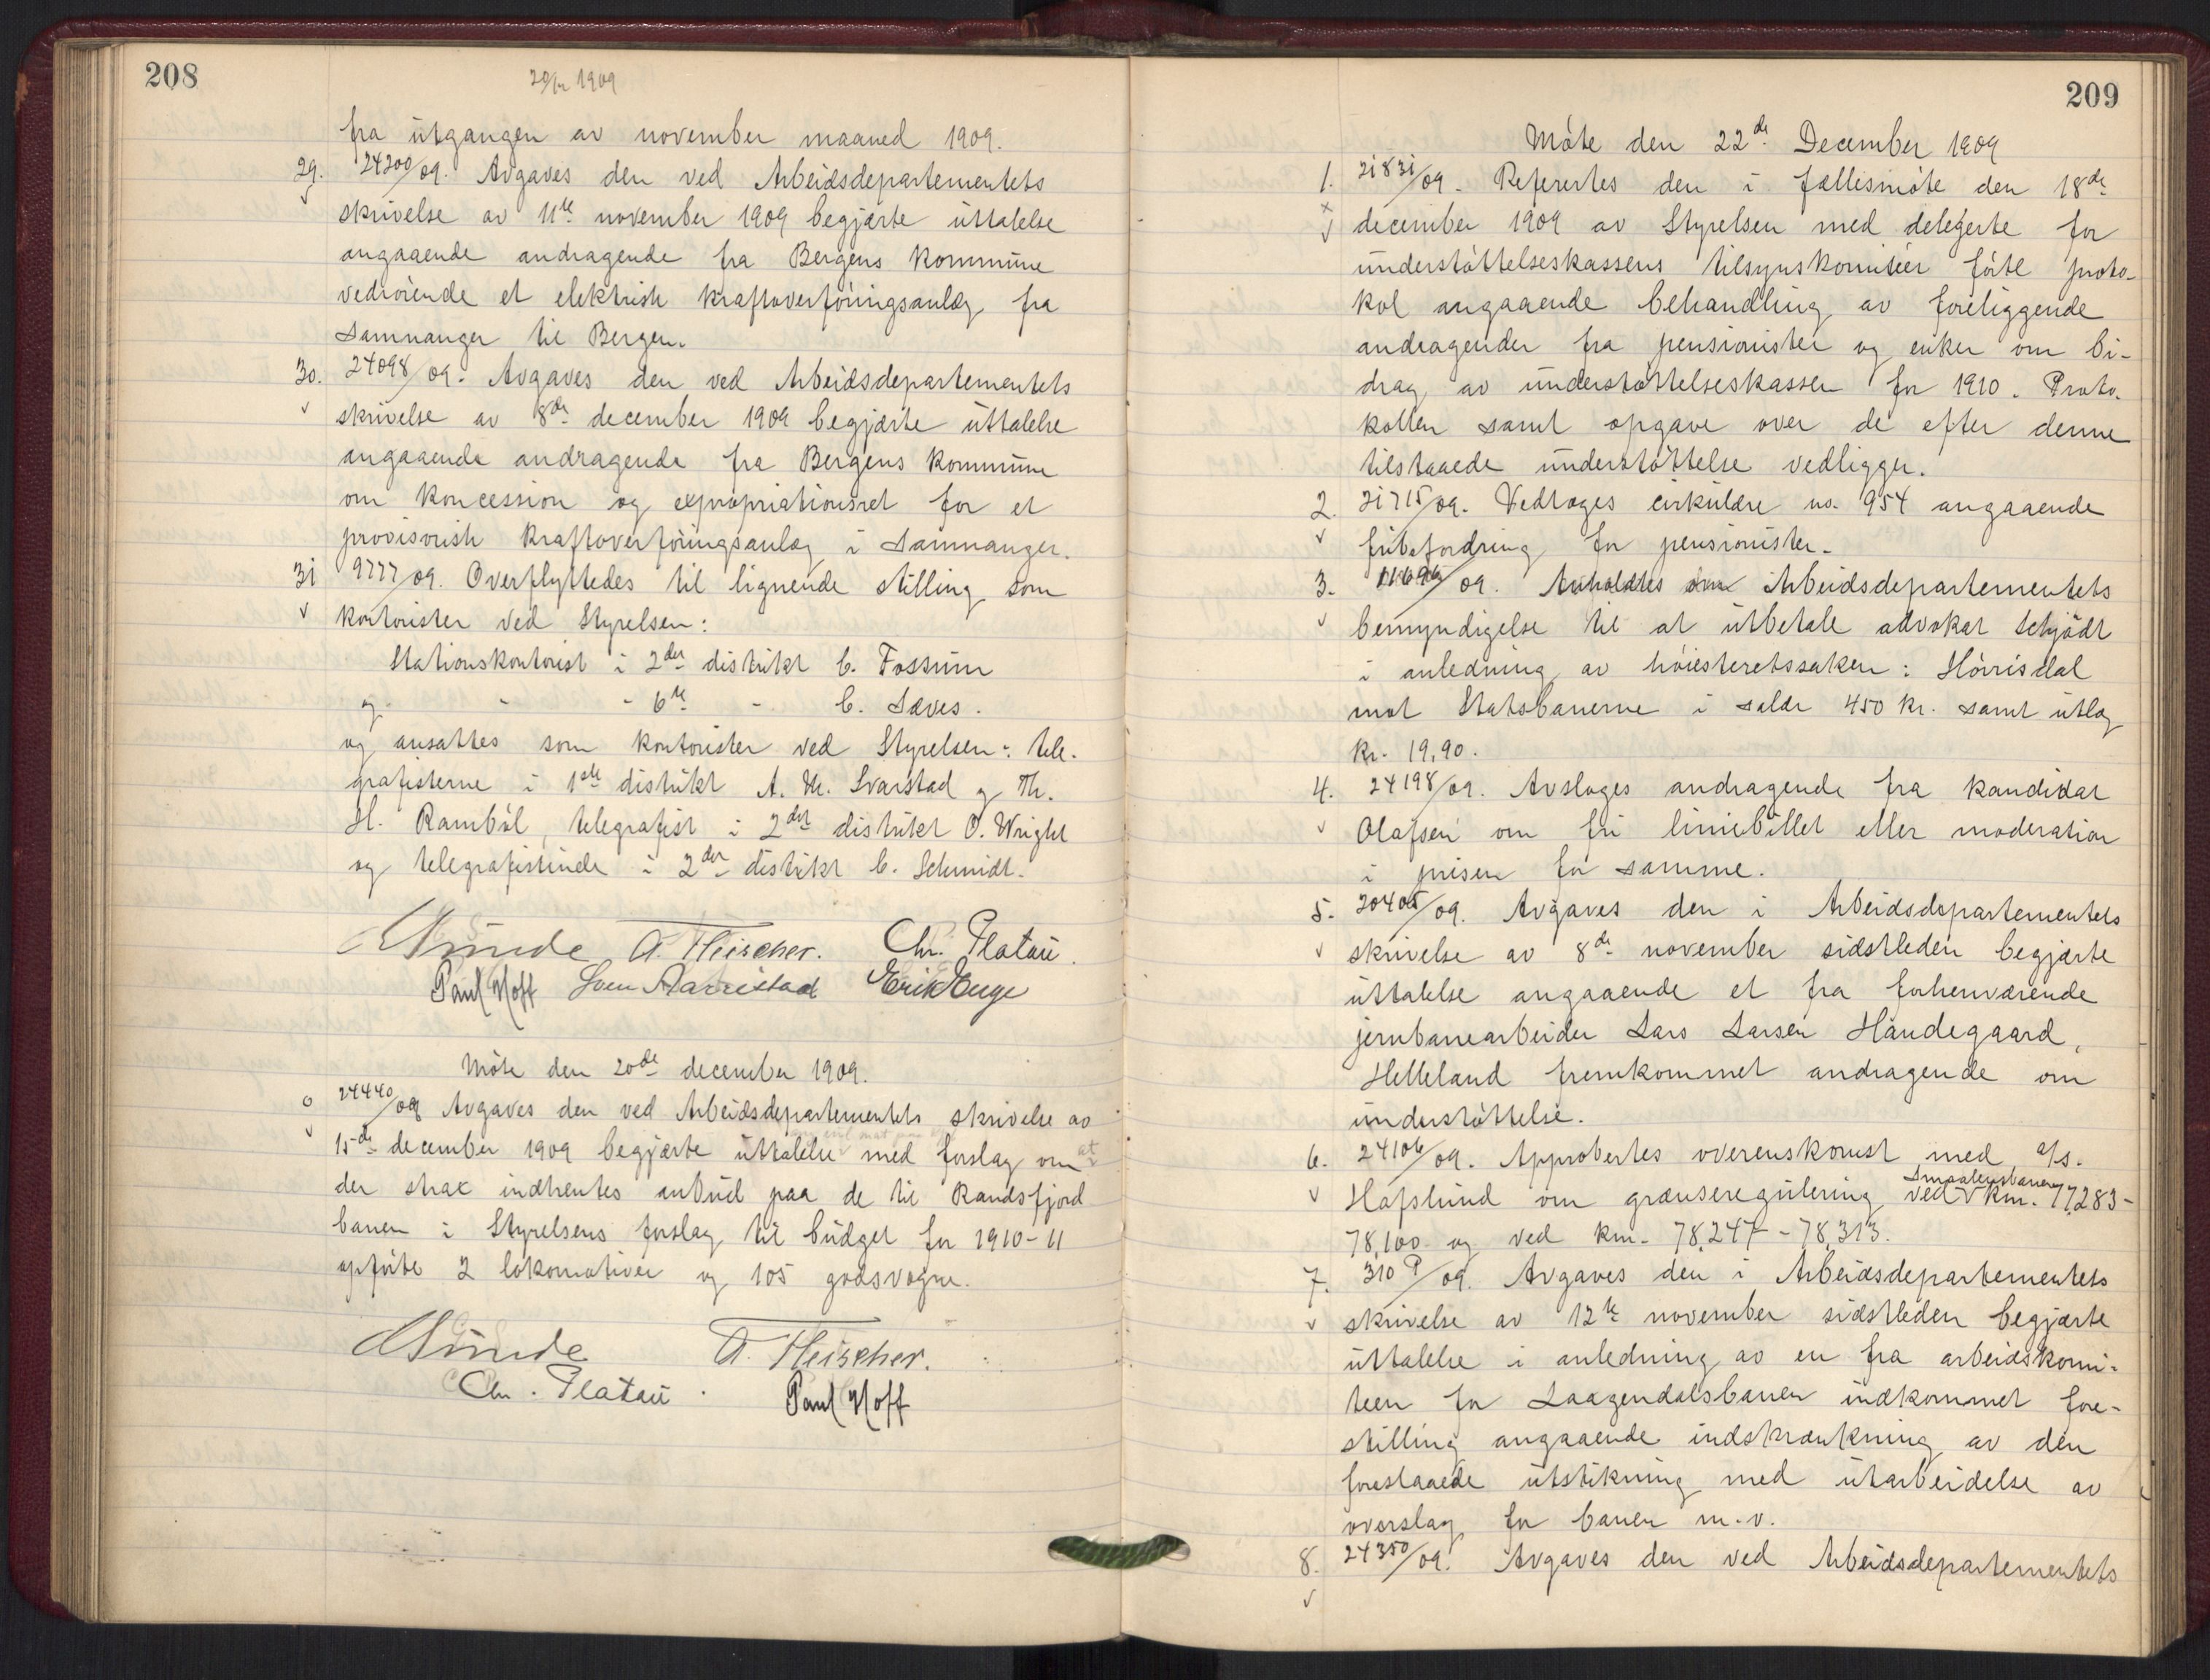 208
20/12 1909
fra utgangen av november maaned 1909.
29. 24200/09. Avgaves den ved Arbeidsdepartementets
skrivelse av 11te november 1909 begjærte uttalelse
angaaende andragende fra Bergens kommune
vedrørende et elektrisk kraftoverføringsanlæg fra
Samnanger til Bergen.
30. 24098/09. Avgaves den ved Arbeidsdepartementets
skrivelse av 8de december 1909 begjærte uttalelse
angaaende andragende fra Bergens kommune
om koncession og expropriationsret for et
provisorisk kraftoverføringsanlæg i Samnanger.
31 9777/09. Overflyttedes til lignende stilling som
kontorister ved Styrelsen:
Stationskontorist i 2det distrikt C. Fossum
og - - 6te - C. Sæves.
og ansattes som kontorister ved Styrelsen: tele-
grafisterne i 1ste distrikt A. M. Svarstad og Th.
H. Rambøl, telegrafist i 2det distrikt O. Wright
og telegrafistinde i 2det distrikt C. Schmidt.
A. Fleischer. Chr. Platou.
Paul Hoff Sven Aarrestad Erik Enge
Møte den 20de december 1909.
24440/09 Avgaves den ved Arbeidsdepartementets skrivelse av
15de december 1909 begjærte uttalelse med forslag om at
der strax indhentes anbud paa de til Randsfjord
banen i Styrelsens forslag til budget for 1910-11
opførte 2 lokomotiver og 105 godsvogne.
A. Fleischer.
Chr. Platou. Paul Hoff
209
Møte den 22de December 1909
1. 21831/09. Refereres den i fællesmøte den 18de
december 1909 av Styrelsen med delegerte for
understøttelseskassens tilsynskomiteer førte proto-
kol angaaende behandling av foreliggende
andragender fra pensionister og enker om bi-
drag av understøttelseskassen for 1910. Proto-
kollen samt opgave over de efter denne
tilstaaede understøttelse vedligger.
2. 21715/09. Vedtoges cirkulære no. 954 angaaende
fribefordring for pensionister.
3. 11696/09. Anholdtes om Arbeidsdepartementets
bemyndigelse til at utbetale advokat Schjødt
i anledning av høiesteretssaken: Hørrisdal
mot Statsbanerne i salær 450 kr. samt utlæg
kr. 19,90.
4. 24198/09. Avsloges andragende fra kandidat
Olafsen om fri liniebillet eller moderation
i prisen for samme.
5. 20405/09. Avgaves den i Arbeidsdepartementets
skrivelse av 8de november sidstleden begjærte
uttalelse angaaende et fra forhenværende
jernbanearbeider Lars Larsen Haudegaard,
Helleland fremkommet andragende om
understøttelse.
6. 24106/09. Approbertes overenskomst med a/s.
Hafslund om grænseregulering ved Smaalensbanen km. 77,283-
78,100 og ved km. 78,247-78,313.
7. 310 P/09. Avgaves den i Arbeidsdepartementets
skrivelse av 12te november sidstleden begjærte
uttalelse i anledning av en fra arbeidskomi-
teen for Laagendalsbanen indkommet fore-
stilling angaaende indskrænkning av den
forestaaede utstikning med utarbeidelse av
overslag for banen m.v.
8. 24350/09. Avgaves den ved Arbeidsdepartementets